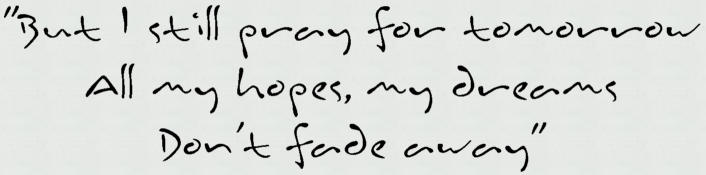 "But I still pray for tomorrow
All my hopes, my dreams
Don't fade away"